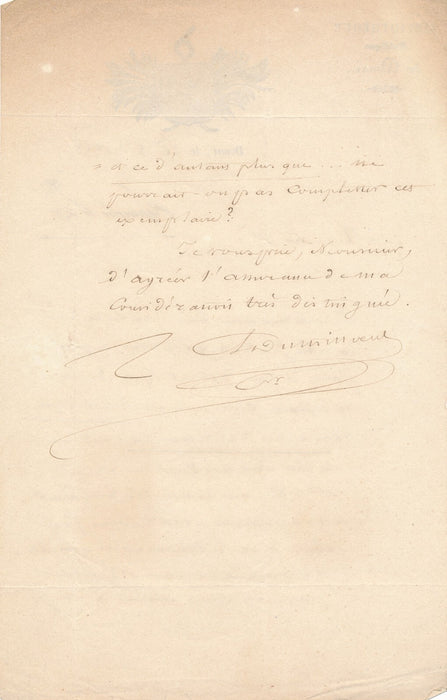 et ce d'autant plus que... ne
pourrait-on pas completter cet
exemplaire?
Je vous prie, Monsieur,
d'agréer l'assurance de ma
Considération très distinguée.